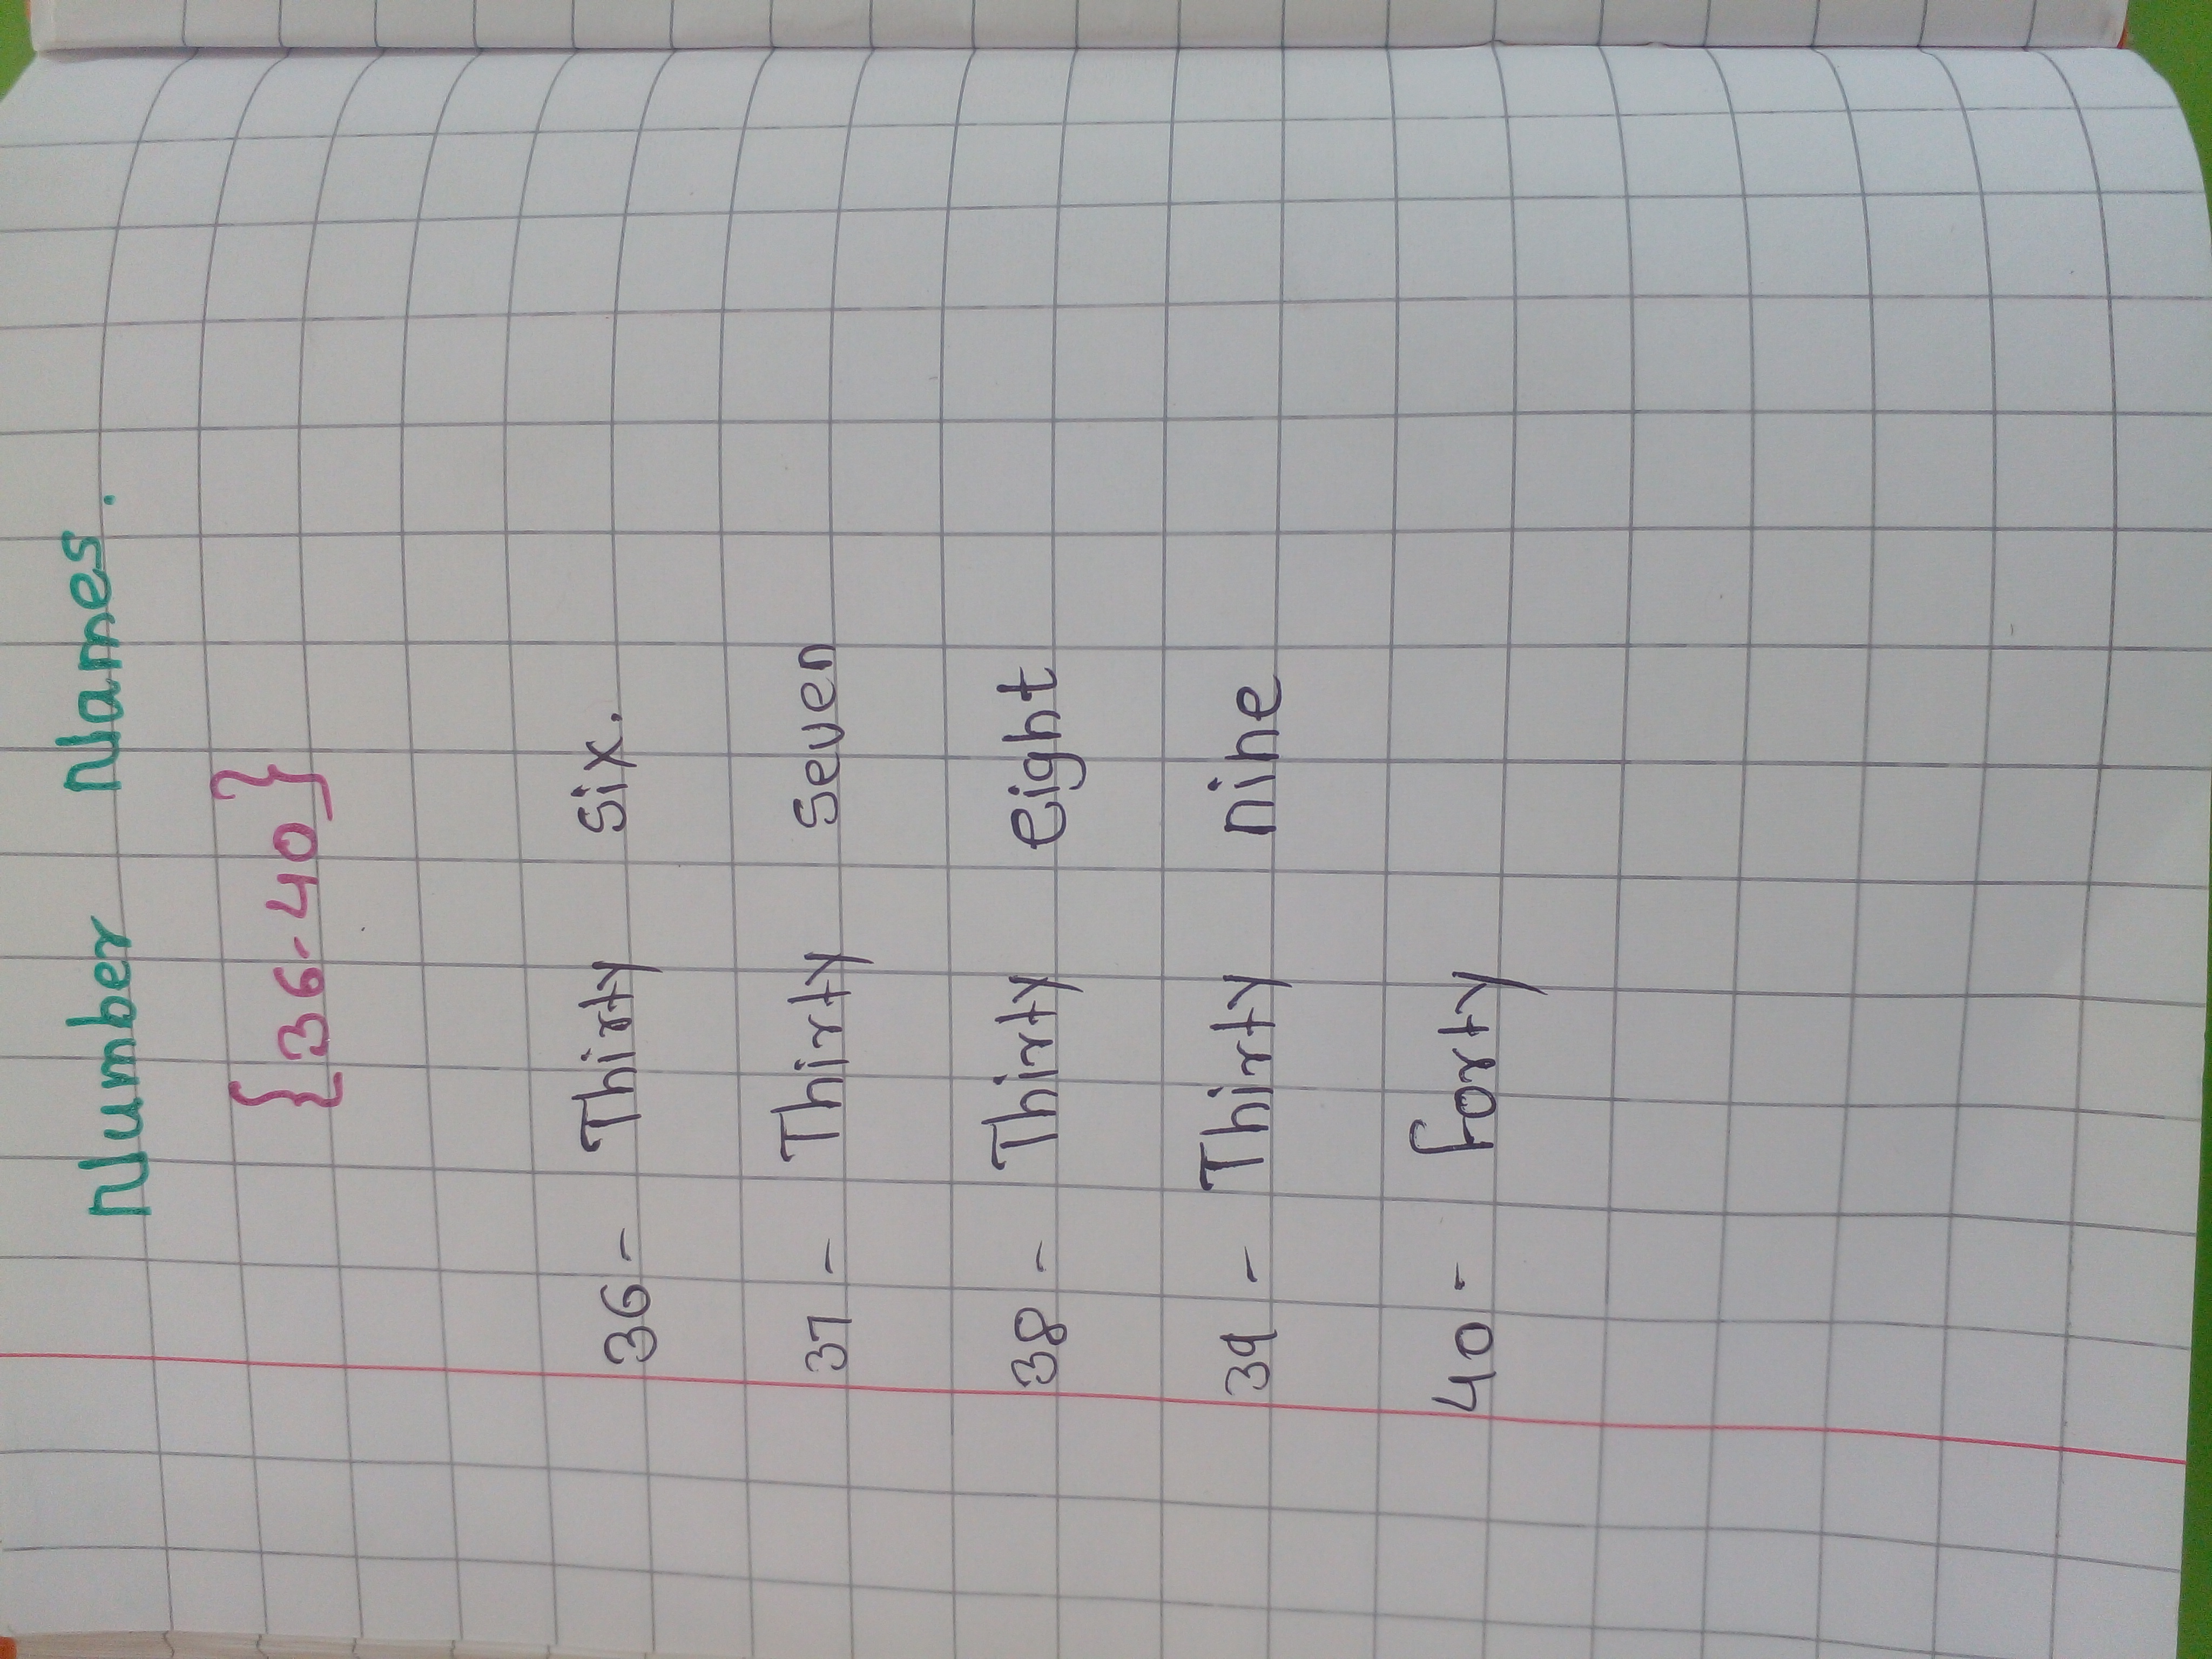 Number Names.
{36-40}
36- Thirty Six.
37- Thirty Seven
38- Thirty eight
39- Thirty nine
40- forty